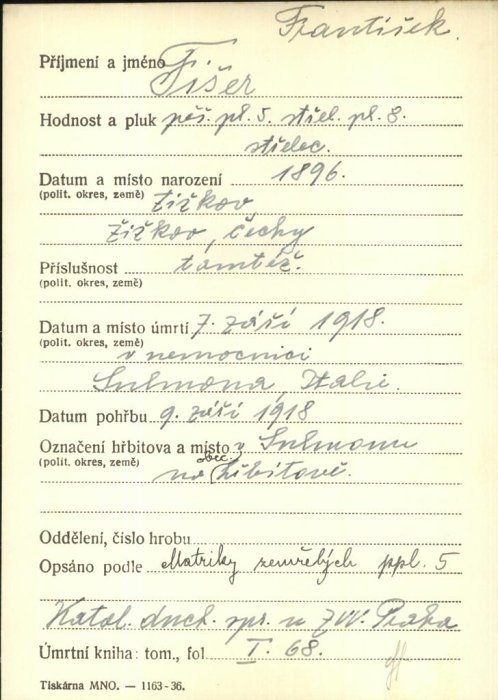 František.
Příjmení a jméno Fišer
Hodnost a pluk pěš. pl. 5. střel. pl. 8.
střelec.
Datum a místo narození 1896.
(polit. okres, země) Žižkov
Žižkov, Čechy
Příslušnost tamtéž.
(polit. okres, země)
Datum a místo úmrtí 7. září 1918.
(polit. okres, země) v nemocnici
Sulmona, Italie.
Datum pohřbu 9. září 1918
Označení hřbitova a místo v Sulmoně
(polit. okres, země) na obec. hřbitově.
Oddělení, číslo hrobu
Opsáno podle Matriky zemřelých ppl. 5
Katol. duch. spr. u ZVV. Praha
Úmrtní kniha: tom., fol. I. 68.
Tiskárna MNO. — 1163-36.